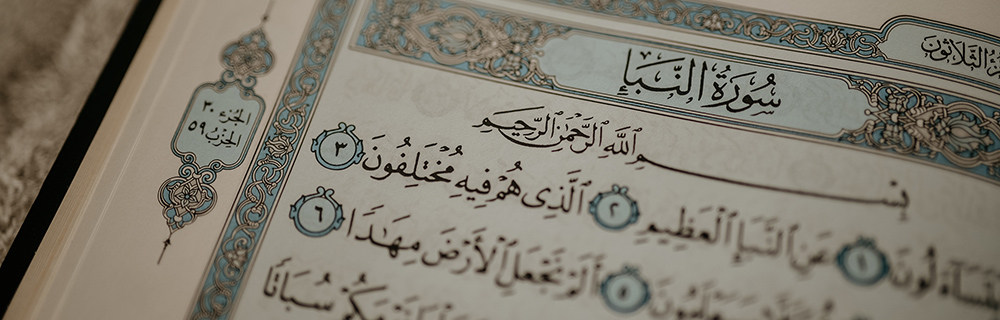 الثَّلَاثُونَ
سُورَةُ النَّبَإِ
الجُزْءُ ٣٠
الحِزْبُ ٥٩
بِسْمِ ٱللَّهِ ٱلرَّحْمَٰنِ ٱلرَّحِيمِ
تَسَآءَلُونَ ١ عَنِ ٱلنَّبَإِ ٱلْعَظِيمِ ٢ ٱلَّذِى هُمْ فِيهِ مُخْتَلِفُونَ ٣
٥ أَلَمْ نَجْعَلِ ٱلْأَرْضَ مِهَٰدًا ٦
سُبَاتًا